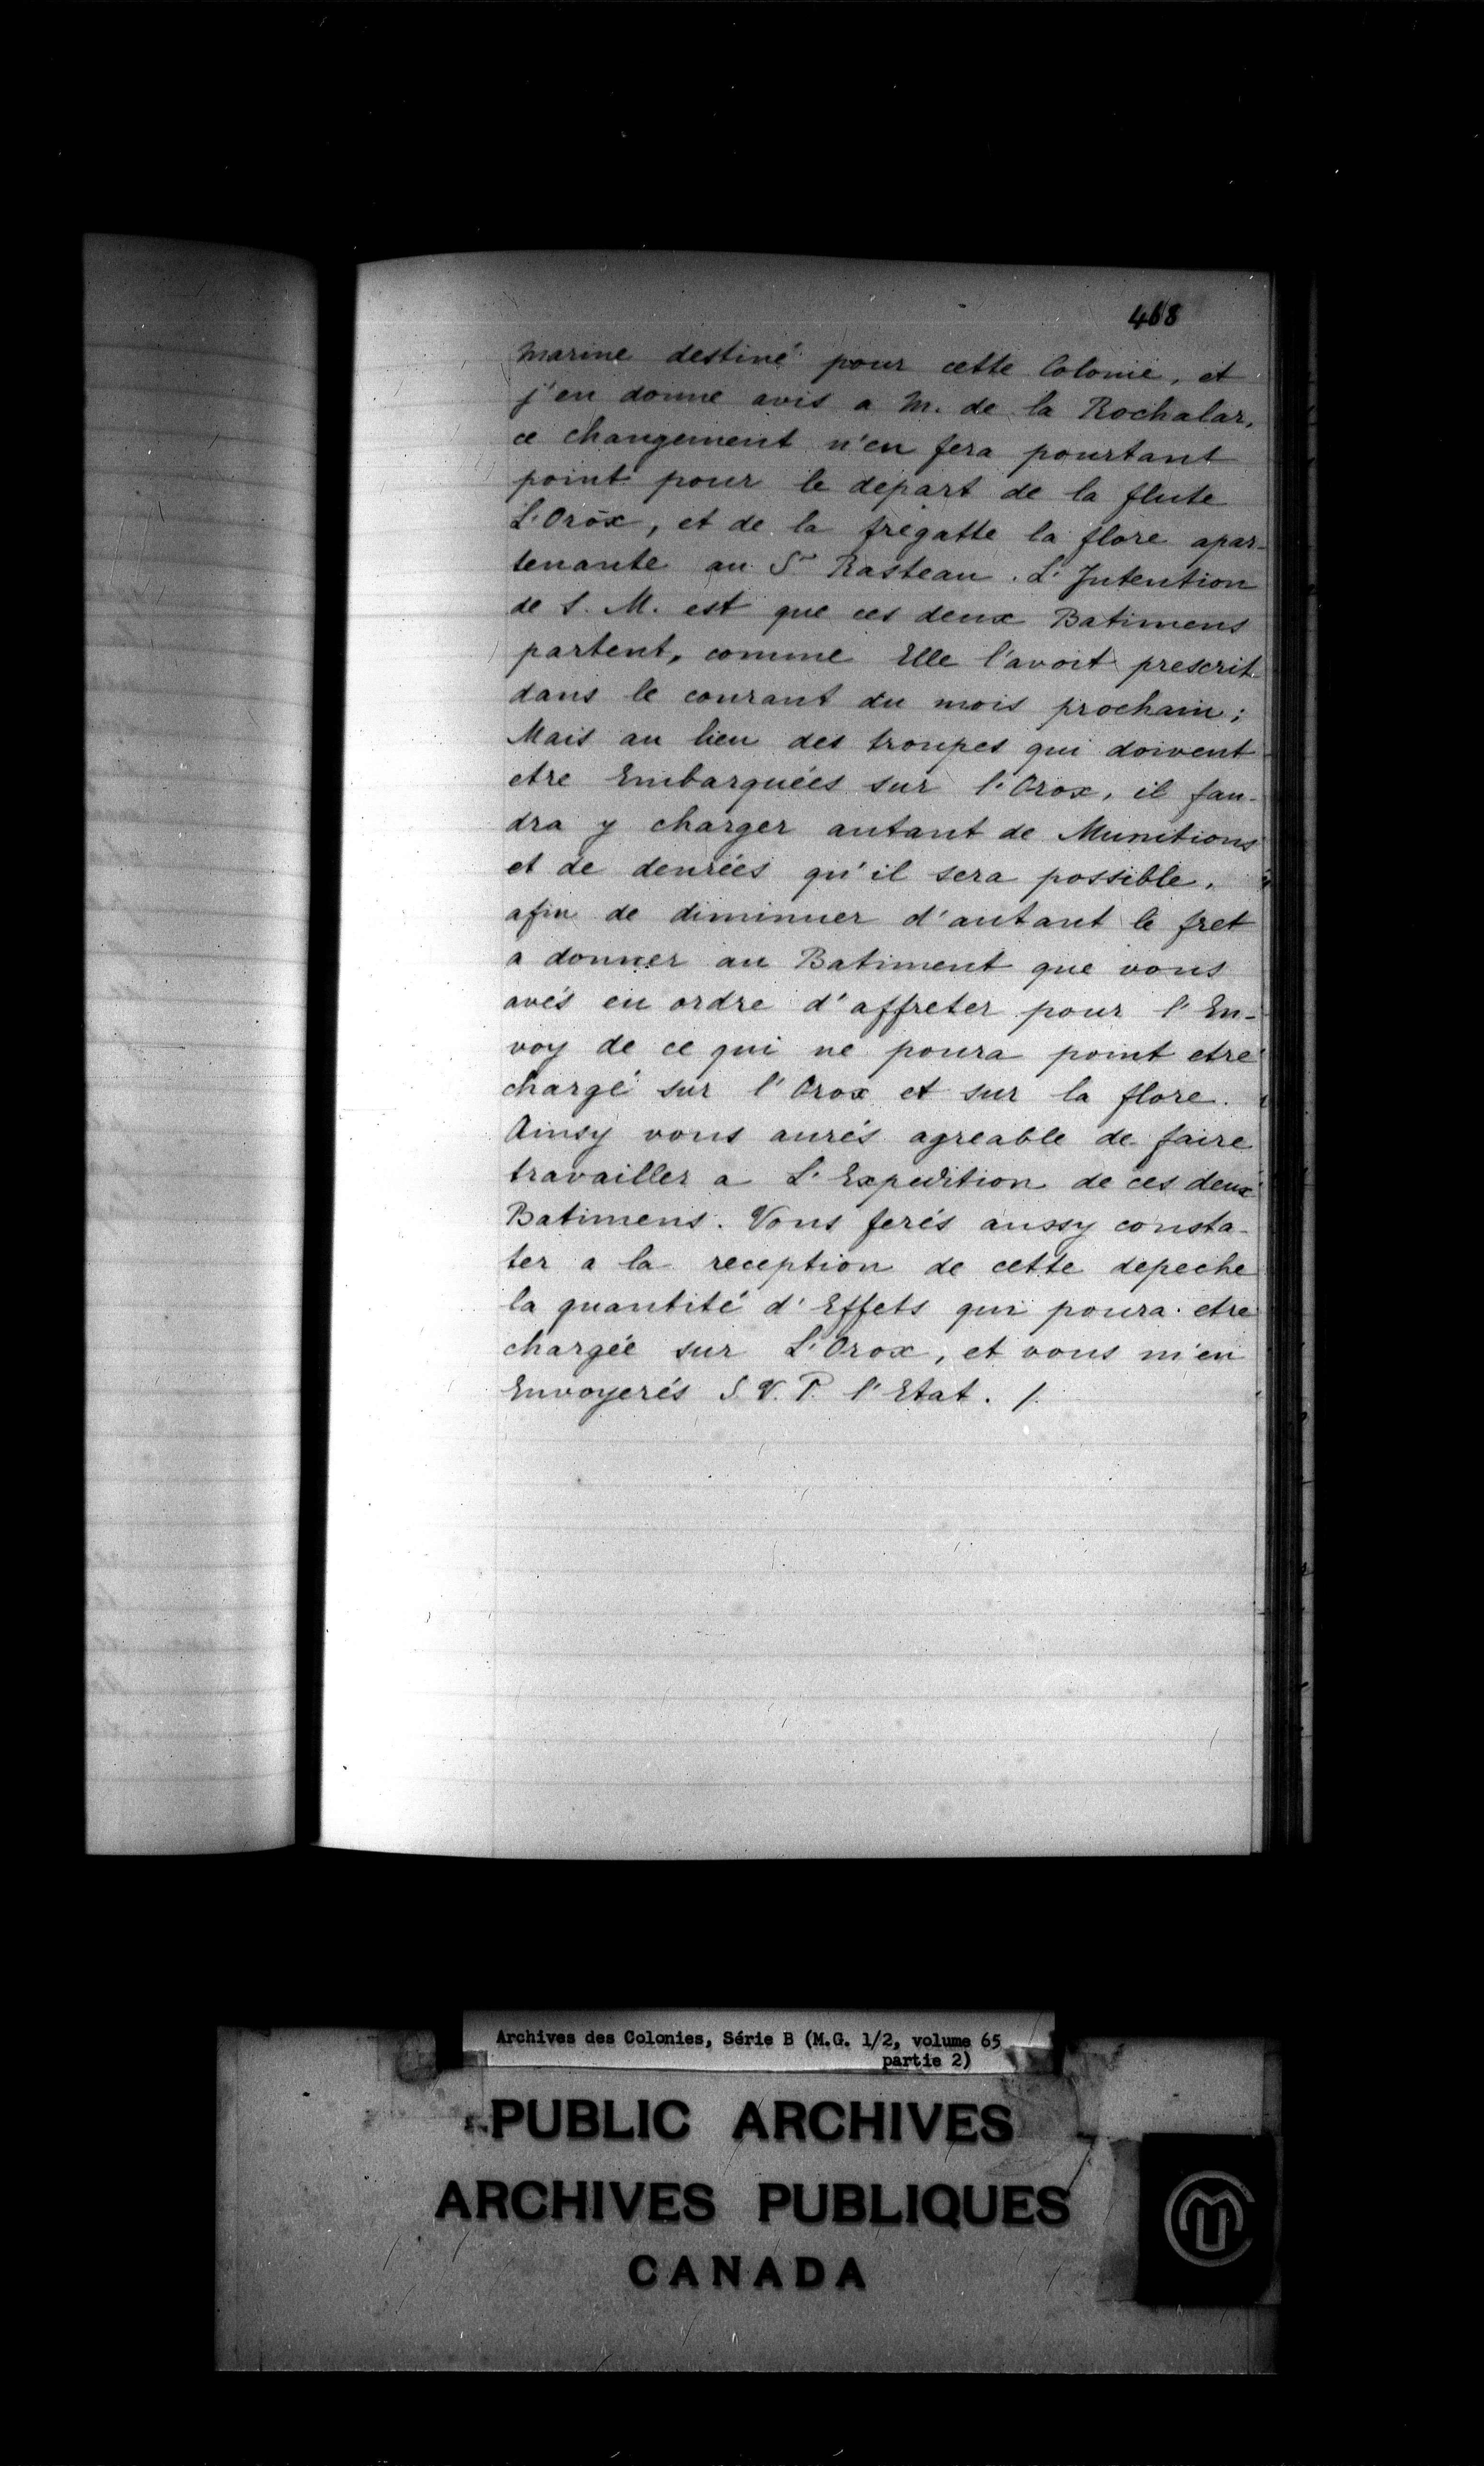 468
marine destiné pour cette Colonie, et
j'en donne avis a M. de la Rochalar,
ce changement n'en fera pourtant
point pour le depart de la flute
L'Orox, et de la fregatte la flore apar-
tenante au Sr Rasteau. L'Intention
de S. M. est que ces deux Batimens
partent, comme Elle l'avoit prescrit
dans le courant du mois prochain;
Mais au lieu des troupes qui doivent
etre Embarquées sur l'Orox, il fau-
dra y charger autant de Munitions
et de denrées qu'il sera possible,
afin de diminuer d'autant le fret
a donner au Batiment que vous
avés eu ordre d'affreter pour l'En-
voy de ce qui ne poura point etre
chargé sur l'Orox et sur la flore.
Ainsy vous aurés agreable de faire
travailler a L'Expedition de ces deux
Batimens. Vous ferés aussy consta-
ter a la reception de cette depeche
la quantité d'Effets qui poura etre
chargée sur L'Orox, et vous m'en
Envoyerés S. V. P. l'Etat. /.
Archives des Colonies, Série B (M.G. 1/2, volume 65
partie 2)
PUBLIC ARCHIVES
ARCHIVES PUBLIQUES
CANADA